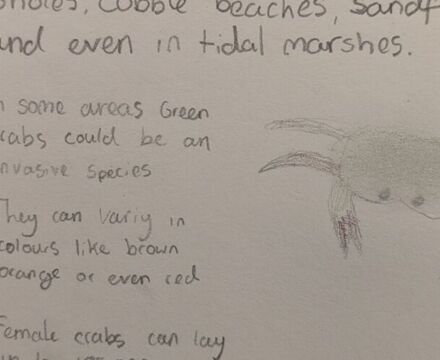 holes, cobble beaches, sandf
and even in tidal marshes.
n some areas Green
crabs could be an
nvasive species
They can variy in
colours like brown
orange or even red
Female crabs can lay